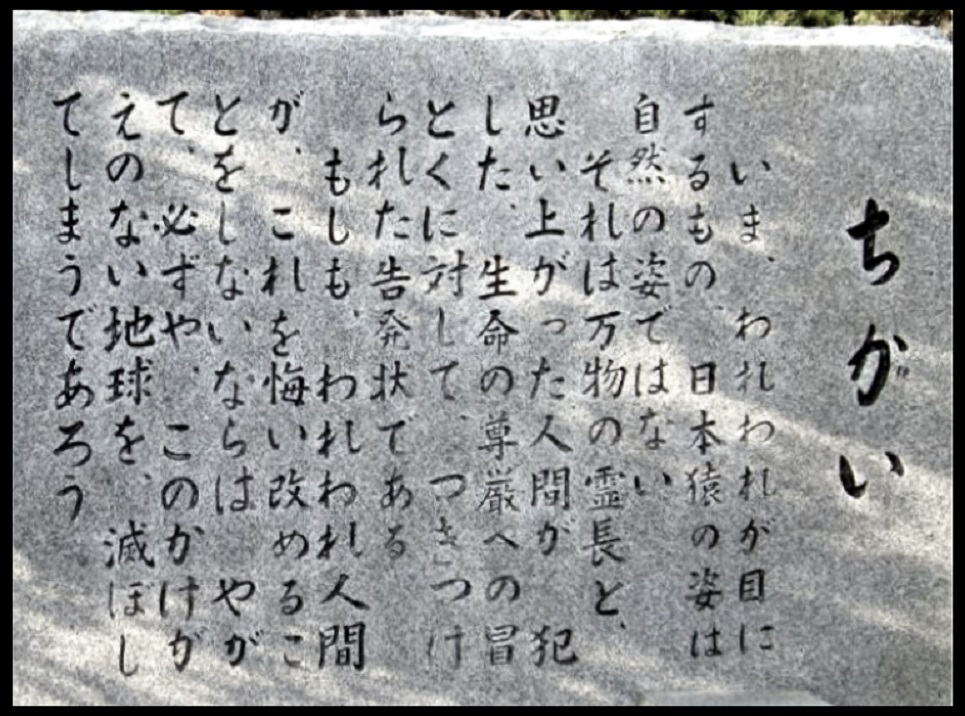 ちかﾞい
いま、われわれが目に
するもの、日本猿の姿は
自然の姿ではない
それは万物の霊長と、
思い上がった人間が 犯
した、生命の尊厳への冒
とくに対して、つきつけ
られた告発状である
もしも、われわれ人間
が、これを悔い改めるこ
とをしないならば やが
て、必ずや、このかけが
えのない地球を、滅ぼし
てしまうであろう